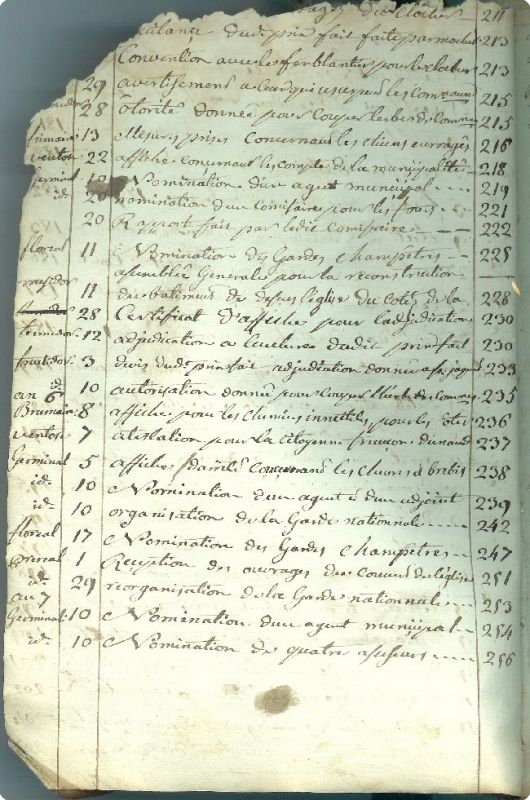 du Cloître 211
dudt prix fait faite par 213
Convention avec les ferblantiers pour 213
29 avertissement a ceux qui 215
28 donnée pour Couper l'erbe des Communs 215
frimaire 13 Mesures prises Concernant les chiens enragés 216
ventos 22 affiche concernant les compte de la municipalité 218
Germinal 10 Nomination d'un agent municipal 219
id. nomination d'un Comisaire pour les fours 221
20 Raport fait par ledit Comisaire 222
floreal 11 Nomination des Gardes Champetres 225
assemblée Generale pour la reconstruction
mesidor 11 du batiment de desus l'église du Coté de la 228
28 Certificat d'affiche pour l'adjudication 230
termidor 12 adjudication a lectures dudit prixfait 230
fructidor 3 devis dudt prixfait adjudication donnée 233
id. 10 autorisation donnée pour Couper l'herbe des Communs 235
an 6
Brumaire 8 affiche pour les chemins innutiles pour les oter 236
ventos 7 atestation pour la citoyenne 237
Germinal 5 affiches d'arrêté Concernand les chevres et brebis 238
id. 10 Nomination d'un agent & d'un adjoint 239
id. 10 organisation de la Garde nationnale 242
floreal 17 Nomination des Gardes Champetres 247
Prereal 1 Reception des ouvrages du Couvert de l'église 251
id. 29 reorganisation de la Garde nationnale 253
an 7
Germinal 10 Nomination d'un agent municipal 254
id. 10 Nomination de quatre asseseurs 256